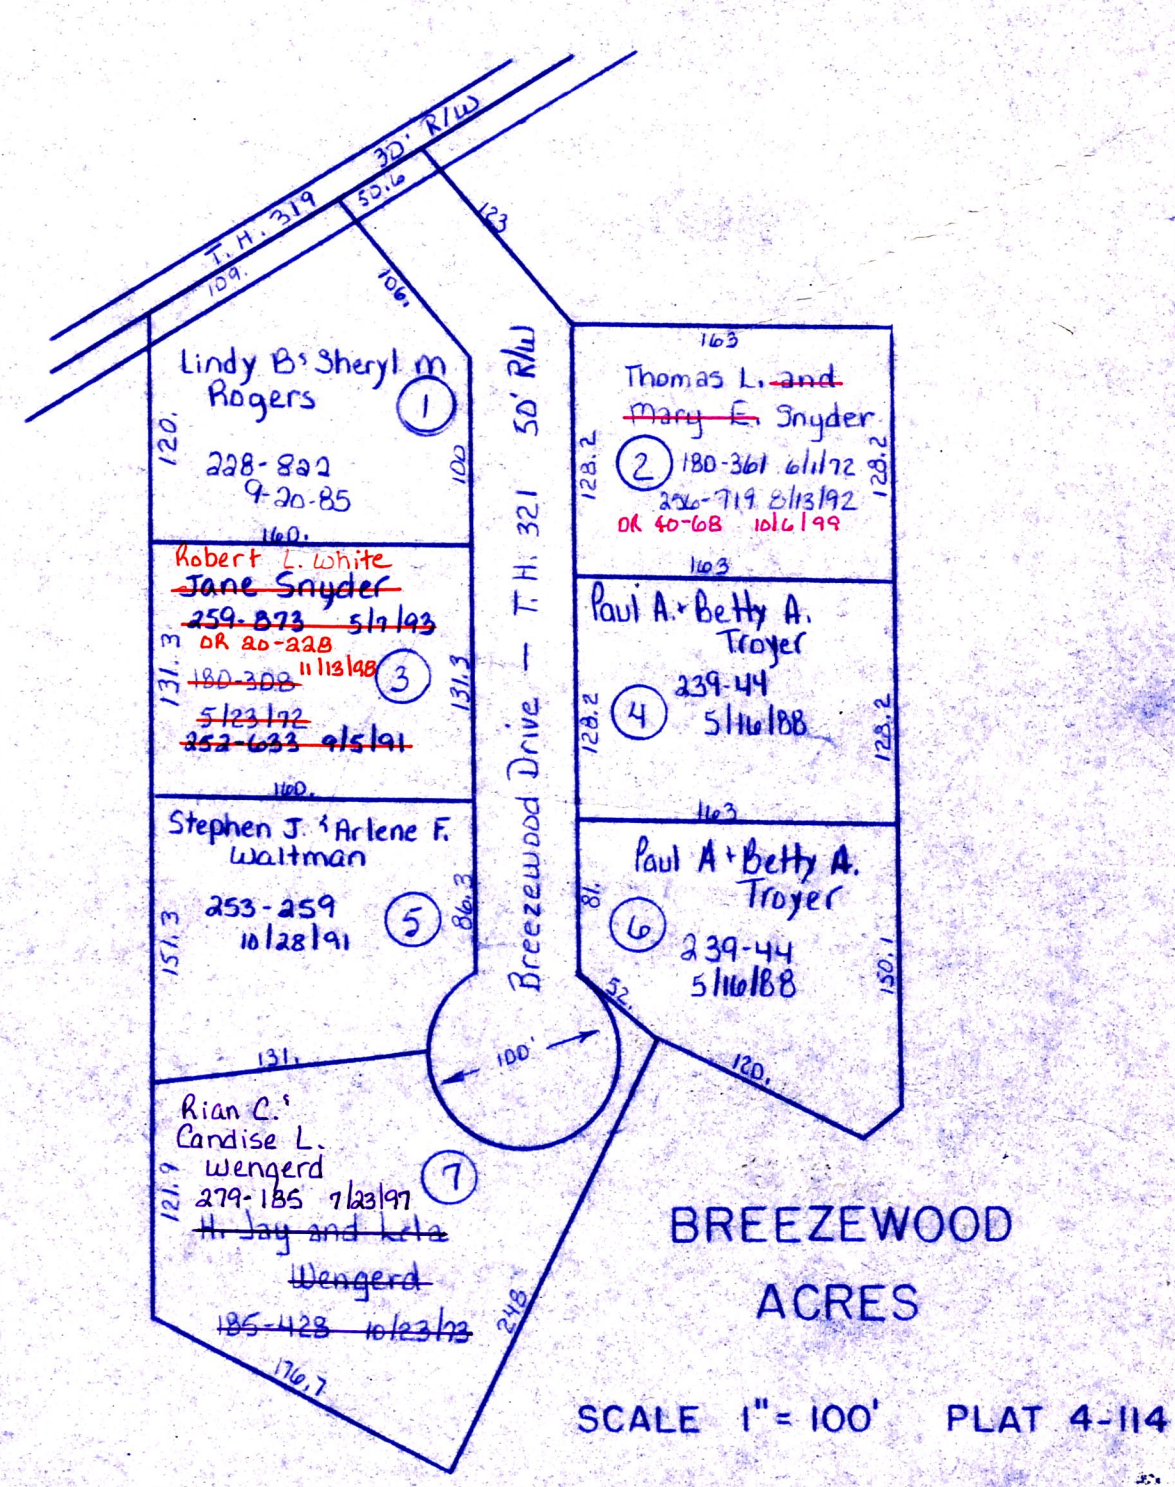 30' R/W
T. H. 319
50.6
109.
123
106.
Lindy B & Sheryl M
Rogers
1
120.
100
228-822
9-20-85
160.
Robert L. White
Jane Snyder
259-873 5/7/93
OR 20-228
11/13/98
180-308
3
131.3
131.3
5/23/72
252-633 9/5/91
160.
Stephen J. & Arlene F.
Waltman
253-259
10/28/91
5
151.3
86.3
131.
Rian C. &
Candise L.
Wengerd
279-185 7/23/97
7
121.9
H. Jay and Lela
Wengerd
185-428 10/23/73
176.7
248
Breezewood Drive — T. H. 321 50' R/W
100'
163
Thomas L. and
Mary E. Snyder
2
180-361 6/1/72
256-719 8/13/92
OR 40-68 10/6/99
128.2
128.2
163
Paul A. + Betty A.
Troyer
239-44
4
5/16/88
128.2
128.2
163
Paul A + Betty A.
Troyer
6
239-44
5/16/88
81.
150.1
52.
120.
BREEZEWOOD
ACRES
SCALE 1" = 100' PLAT 4-114